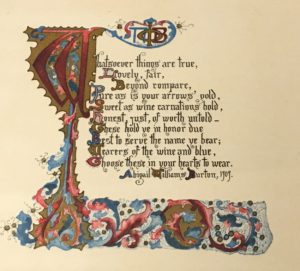 ΠΒΦ
Whatsoever things are true,
Lovely, fair,
Beyond compare,
Pure as is your arrows' gold,
Sweet as wine carnations hold,
Honest, just, of worth untold –
These hold ye in honor due
First to serve the name ye bear;
Wearers of the wine and blue,
Choose these in your hearts to wear.
Abigail Williams Burton,